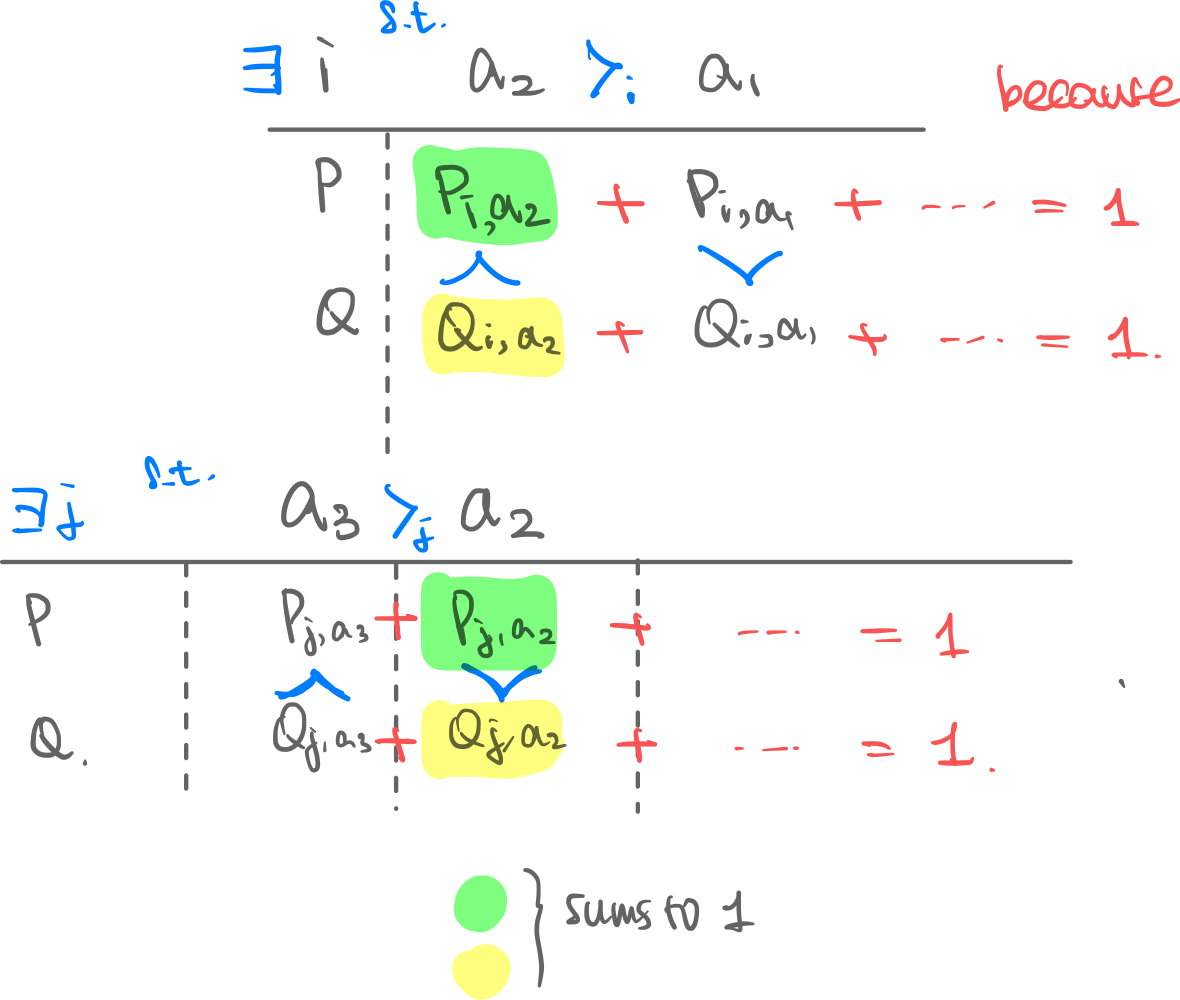 s.t.
∃ i a₂ ≻ᵢ a₁ because
P P_{i,a₂} + P_{i,a₁} + ---- = 1
Q Q_{i,a₂} + Q_{i,a₁} + ---- = 1.
s.t.
∃ j a₃ ≻ⱼ a₂
P P_{j,a₃} + P_{j,a₂} + ---- = 1
Q. Q_{j,a₃} + Q_{j,a₂} + ---- = 1.
sums to 1